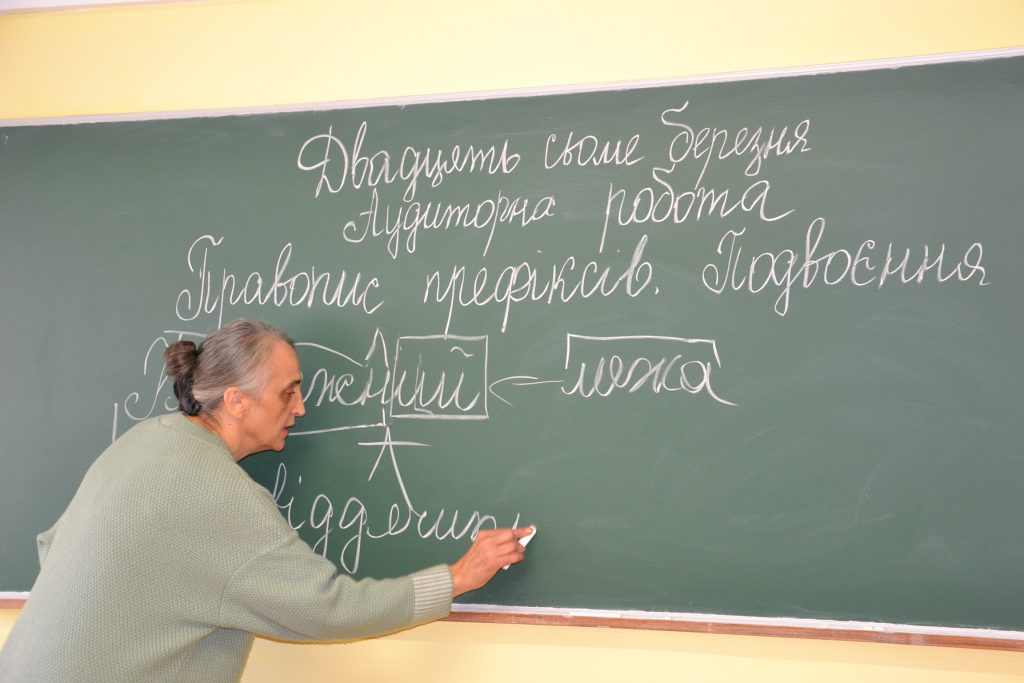 Двадцять сьоме березня
Аудиторна робота
Правопис префіксів. Подвоєння
жний ← межа
віддячит